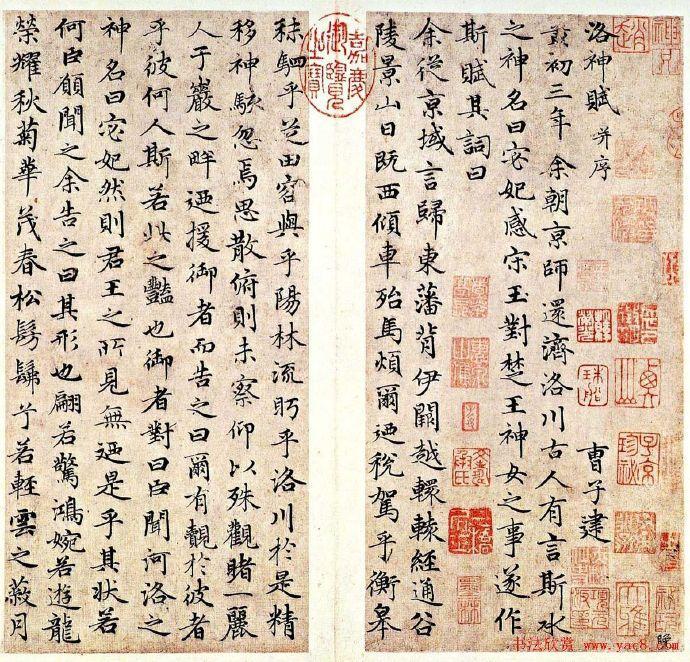 洛神賦 并序
曹子建
黃初三年余朝京師還濟洛川古人有言斯水
之神名曰宓妃感宋玉對楚王神女之事遂作
斯賦其詞曰
余從京域言歸東藩背伊闕越轘轅經通谷
陵景山日既西傾車殆馬煩爾迺稅駕乎衡皋
秣駟乎芝田容與乎陽林流眄乎洛川於是精
移神駭忽焉思散俯則未察仰以殊觀睹一麗
人于巖之畔迺援御者而告之曰爾有覿於彼者
乎彼何人斯若此之豔也御者對曰臣聞河洛之
神名曰宓妃然則君王之所見無迺是乎其狀若
何臣願聞之余告之曰其形也翩若驚鴻婉若遊龍
榮耀秋菊華茂春松髣髴兮若輕雲之蔽月
嘉慶御覽之寶
书法欣赏 www.yac8.com